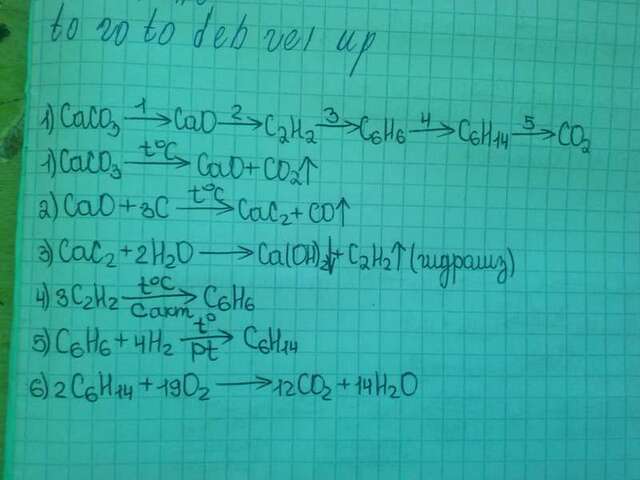 to go to deb vel up
1) CaCO₃ —1→ CaO —2→ C₂H₂ —3→ C₆H₆ —4→ C₆H₁₄ —5→ CO₂
1) CaCO₃ —t°C→ CaO + CO₂↑
2) CaO + 3C —t°C→ CaC₂ + CO↑
3) CaC₂ + 2H₂O ⟶ Ca(OH)₂↓ + C₂H₂↑ (гидролиз)
4) 3C₂H₂ —t°C, Cакт→ C₆H₆
5) C₆H₆ + 4H₂ —t°, Pt→ C₆H₁₄
6) 2C₆H₁₄ + 19O₂ ⟶ 12CO₂ + 14H₂O